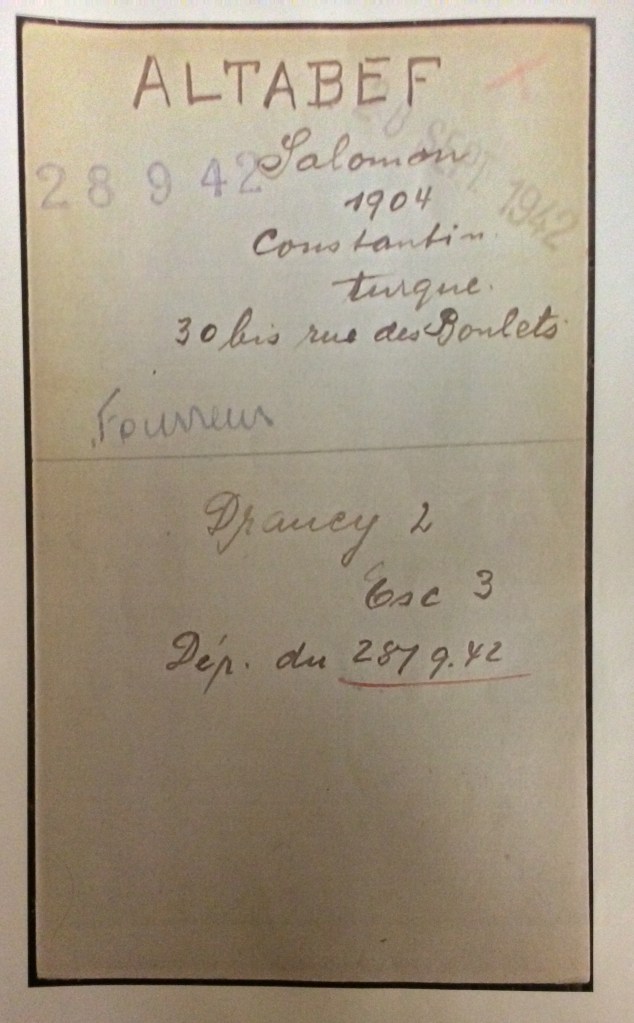 ALTABEF
28 9 42
28 SEPT. 1942
Salomon
1904
Constantin.
turque.
30 bis rue des Boulets
Fourreur
Drancy 2
Esc 3
Dép. du 28/9.42